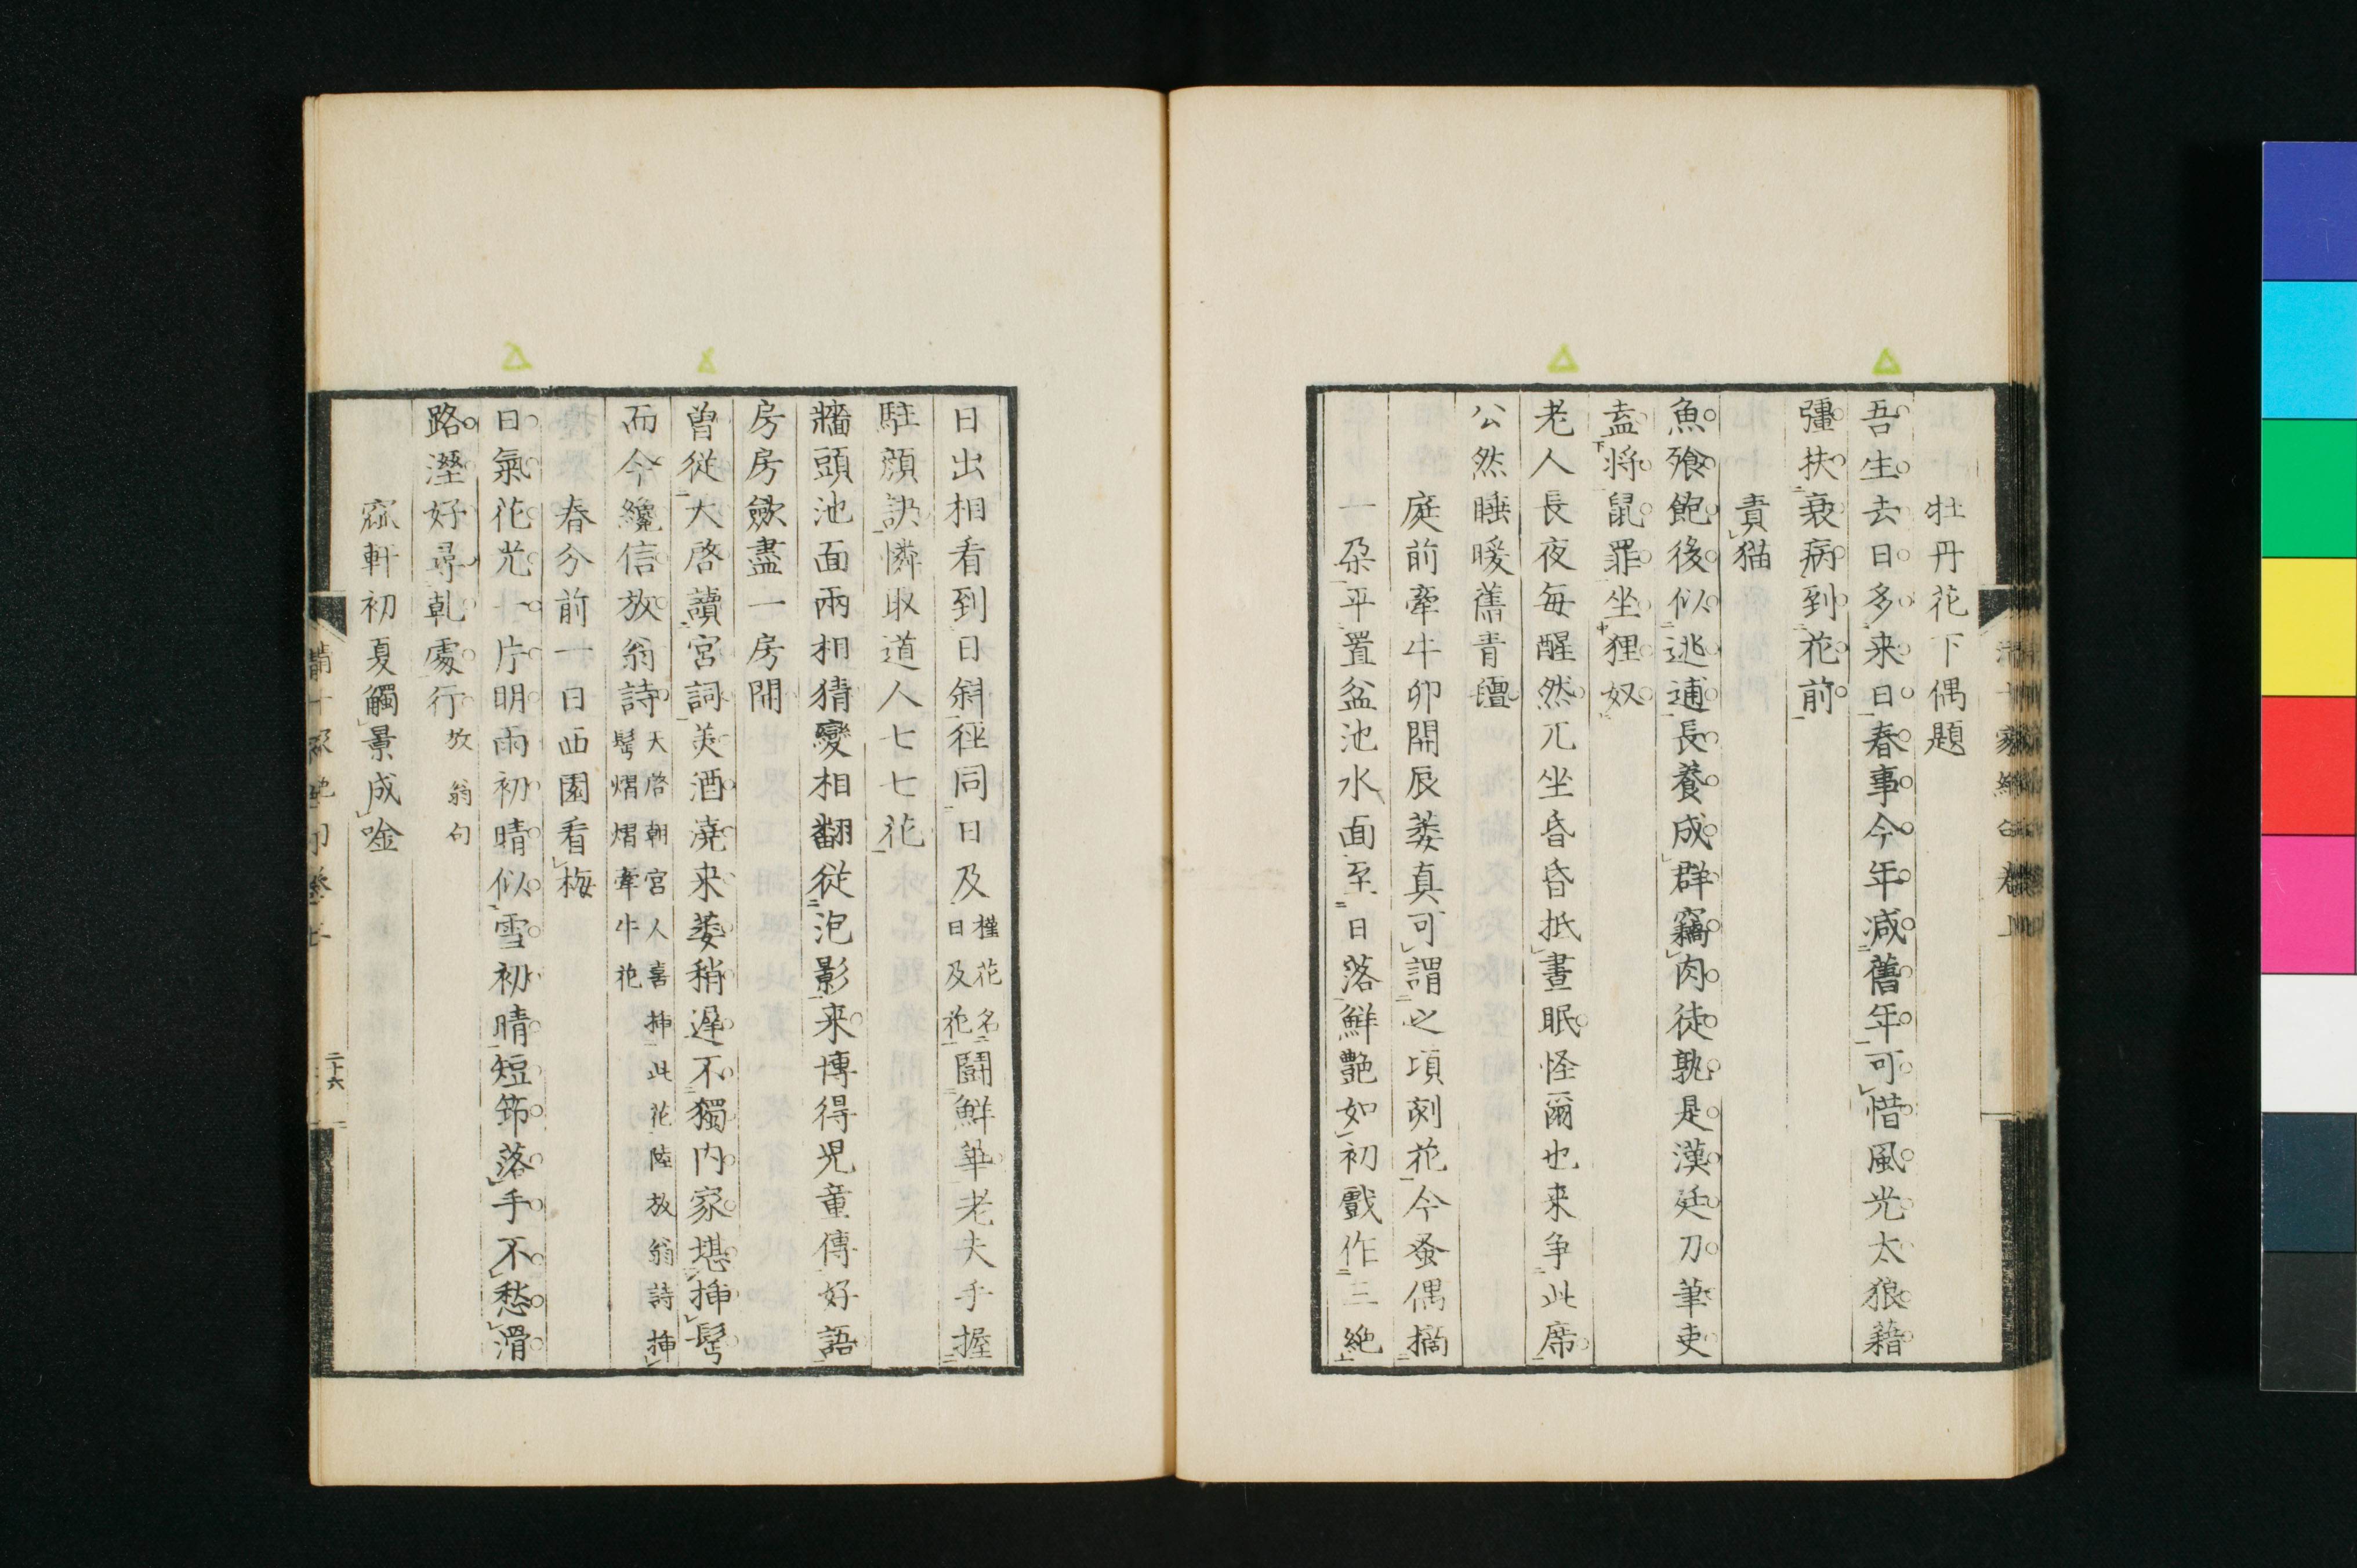 牡丹花下偶題
吾生去日多来日春事今年減舊年可惜風光太狼藉
彊扶衰病到花前
責猫
魚飱飽後似逃逋長養成群竊肉徒孰是漢廷刀筆吏
盍将鼠罪坐狸奴
老人長夜毎醒然兀坐昏昏抵晝眠怪爾也来争此席
公然睡暖舊青氊
庭前牽牛卯開辰萎真可謂之頃刻花今蚤偶摘
一朶平置盆池水面至日落鮮艶如初戯作三絶
日出相看到日斜徑同日及槿花名日及花鬪鮮華老夫手握
駐顔訣憐取道人七七花
牆頭池面兩相猜變相翻從泡影来博得児童傳好語
房房歛盡一房開
曽従天啓讀宮詞美酒澆来萎稍遲不獨内家堪挿髩
而今纔信放翁詩天啓朝宮人喜挿此花陸放翁詩挿髩熠熠牽牛花
春分前一日西園看梅
日氣花光一片明雨初晴似雪初晴短筇落手不愁滑
路溼好尋乾處行放翁句
窳軒初夏觸景成唫
二十六